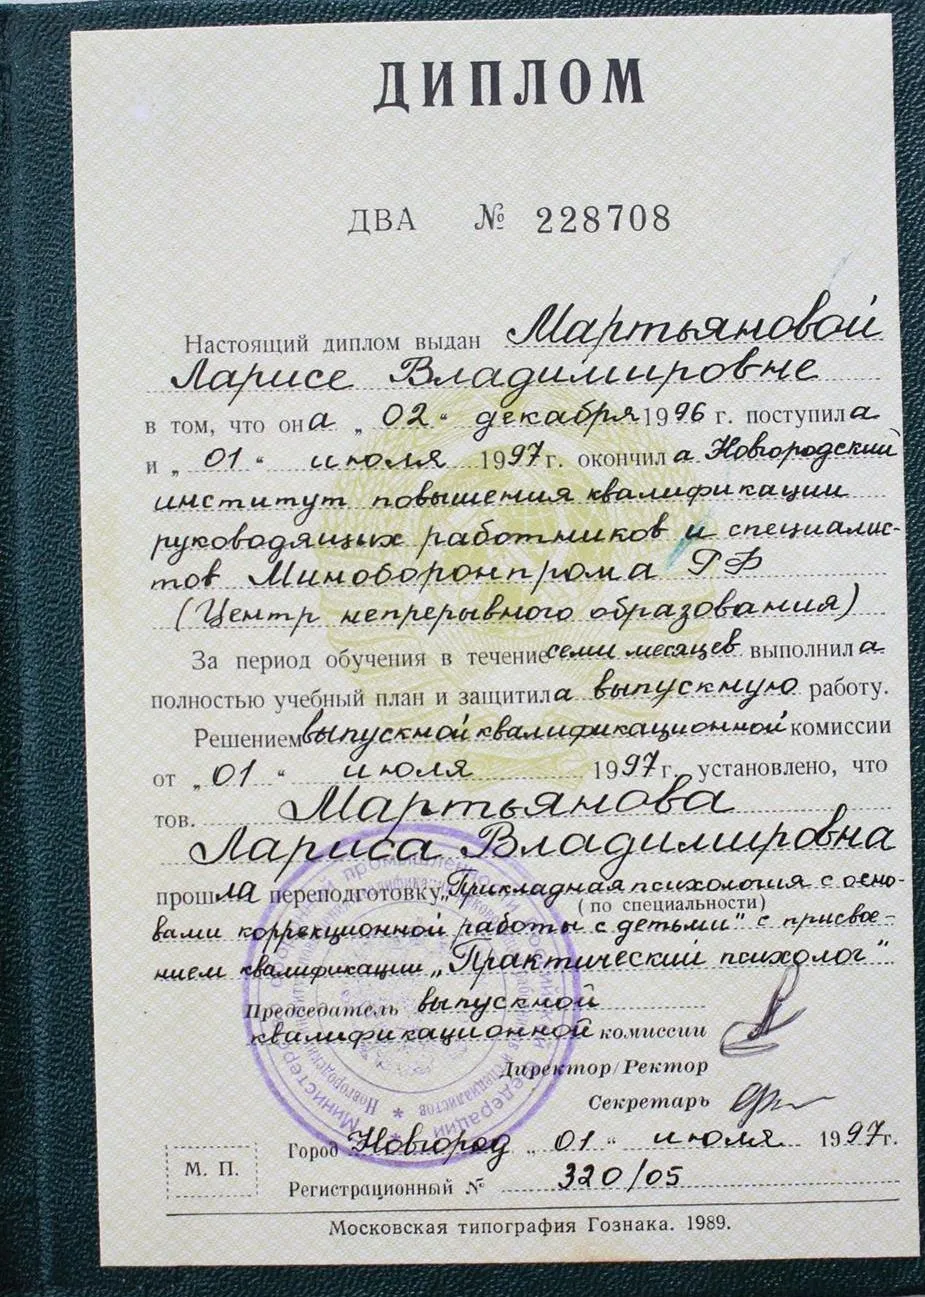 ДИПЛОМ
ДВА № 228708
Настоящий диплом выдан Мартьяновой
Ларисе Владимировне
в том, что она „ 02 “ декабря 1996 г. поступила
и „ 01 “ июля 1997 г. окончила Новгородский
институт повышения квалификации
руководящих работников и специалис-
тов Миноборонпрома РФ
(Центр непрерывного образования)
За период обучения в течение семи месяцев выполнила
полностью учебный план и защитила выпускную работу.
Решением выпускной квалификационной комиссии
от „ 01 “ июля 1997 г. установлено, что
тов. Мартьянова
Лариса Владимировна
прошла переподготовку „Прикладная психология с осно-
(по специальности)
вами коррекционной работы с детьми“ с присвое-
нием квалификации „Практический психолог“
Председатель выпускной
квалификационной комиссии
Директор/Ректор
Секретарь
Город Новгород „ 01 “ июля 1997 г.
М. П.
Регистрационный № 320/05
Московская типография Гознака. 1989.